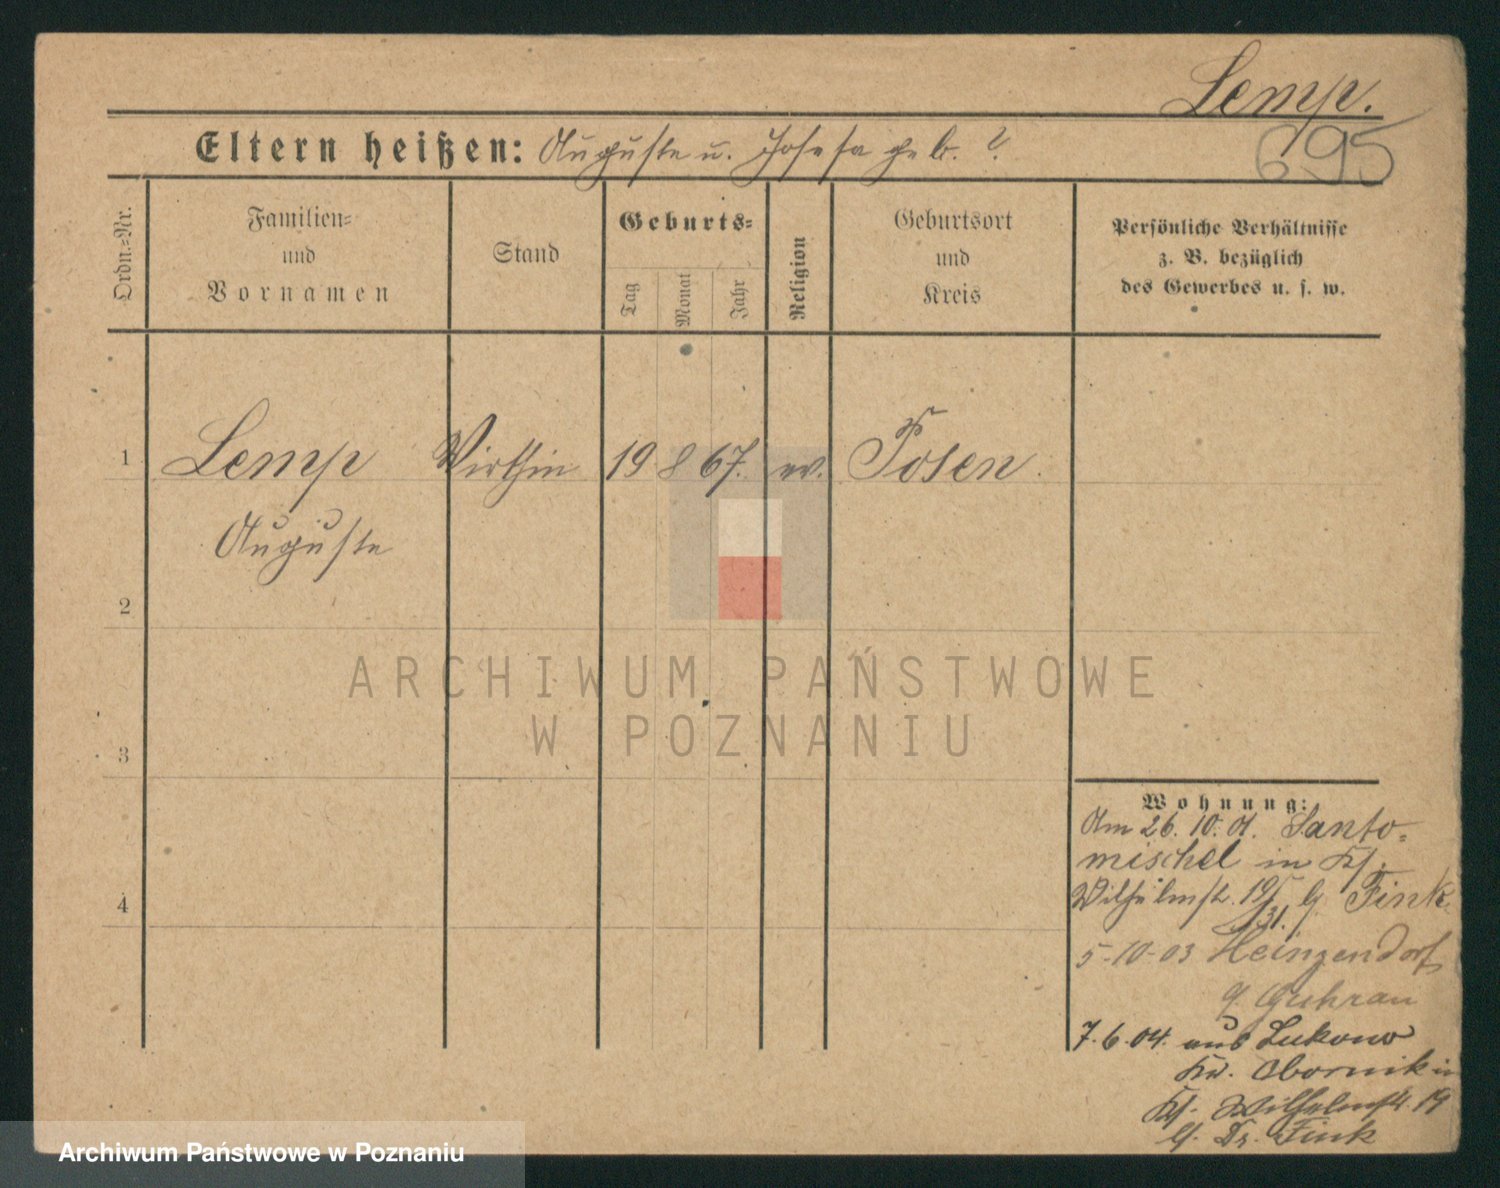 Lemp.
695
Eltern heißen: Auguste u. Josefa geb. ?
Ordn.=Nr.
Familien=
und
Vornamen
Stand
Geburts=
Tag
Monat
Jahr
Religion
Geburtsort
und
Kreis
Persönliche Verhältnisse
z. B. bezüglich
des Gewerbes u. s. w.
1 Lemp Wirthin 19 8 67. ev. Posen.
Auguste
2
3
4
Wohnung:
Am 26. 10. 01. Santo=
mischel in
Wilhelmstr. 19 Fink
31.
5-10-03 Heinzendorf
Guhrau
7.6.04. aus Lukowo
Kr. Obornik in
Wilhelmstr. 19
Dr. Fink
ARCHIWUM PAŃSTWOWE
W POZNANIU
Archiwum Państwowe w Poznaniu